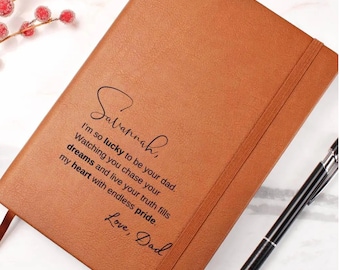 Savannah,
I'm so lucky to be your dad.
Watching you chase your
dreams and live your truth fills
my heart with endless pride.
Love, Dad